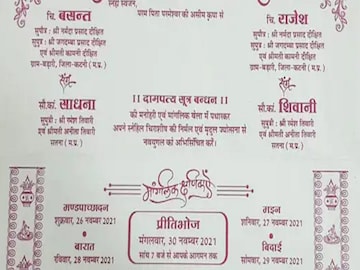 स्नेही स्वजन,
परम पिता परमेश्वर की असीम कृपा से
चि. बसन्त
सुपौत्र : श्री नर्मदा प्रसाद दीक्षित
सुपुत्र : श्री जगदम्बा प्रसाद दीक्षित
एवं श्रीमती कामनी दीक्षित
ग्राम-बड़ारी, जिला-कटनी (म.प्र.)
संग
सौ.कां. साधना
सुपुत्री : श्री रमेश तिवारी
एवं श्रीमती अनीता तिवारी
सतना (म.प्र.)
चि. राजेश
सुपौत्र : श्री नर्मदा प्रसाद दीक्षित
सुपुत्र : श्री जगदम्बा प्रसाद दीक्षित
एवं श्रीमती कामनी दीक्षित
ग्राम-बड़ारी, जिला-कटनी (म.प्र.)
संग
सौ.कां. शिवानी
सुपुत्री : श्री उमेश तिवारी
एवं श्रीमती अनीता तिवारी
सतना (म.प्र.)
।। दामपत्य सूत्र बन्धन ।।
की मनोहरी एवं मांगलिक बेला में पधारकर
अपने स्नेहिल चिराशीष की निर्मल एवं मृदुल ज्योत्सना से
नवयुगल को अभिसिंचित करें।
मांगलिक दृष्टियाँ
मण्डपाच्छादन
शुक्रवार, 26 नवम्बर 2021
बारात
रविवार, 28 नवम्बर 2021
प्रीतिभोज
मंगलवार, 30 नवम्बर 2021
सांय 7 बजे से आपके आगमन तक
मड़न
शनिवार, 27 नवम्बर 2021
बिदाई
सोमवार, 29 नवम्बर 2021